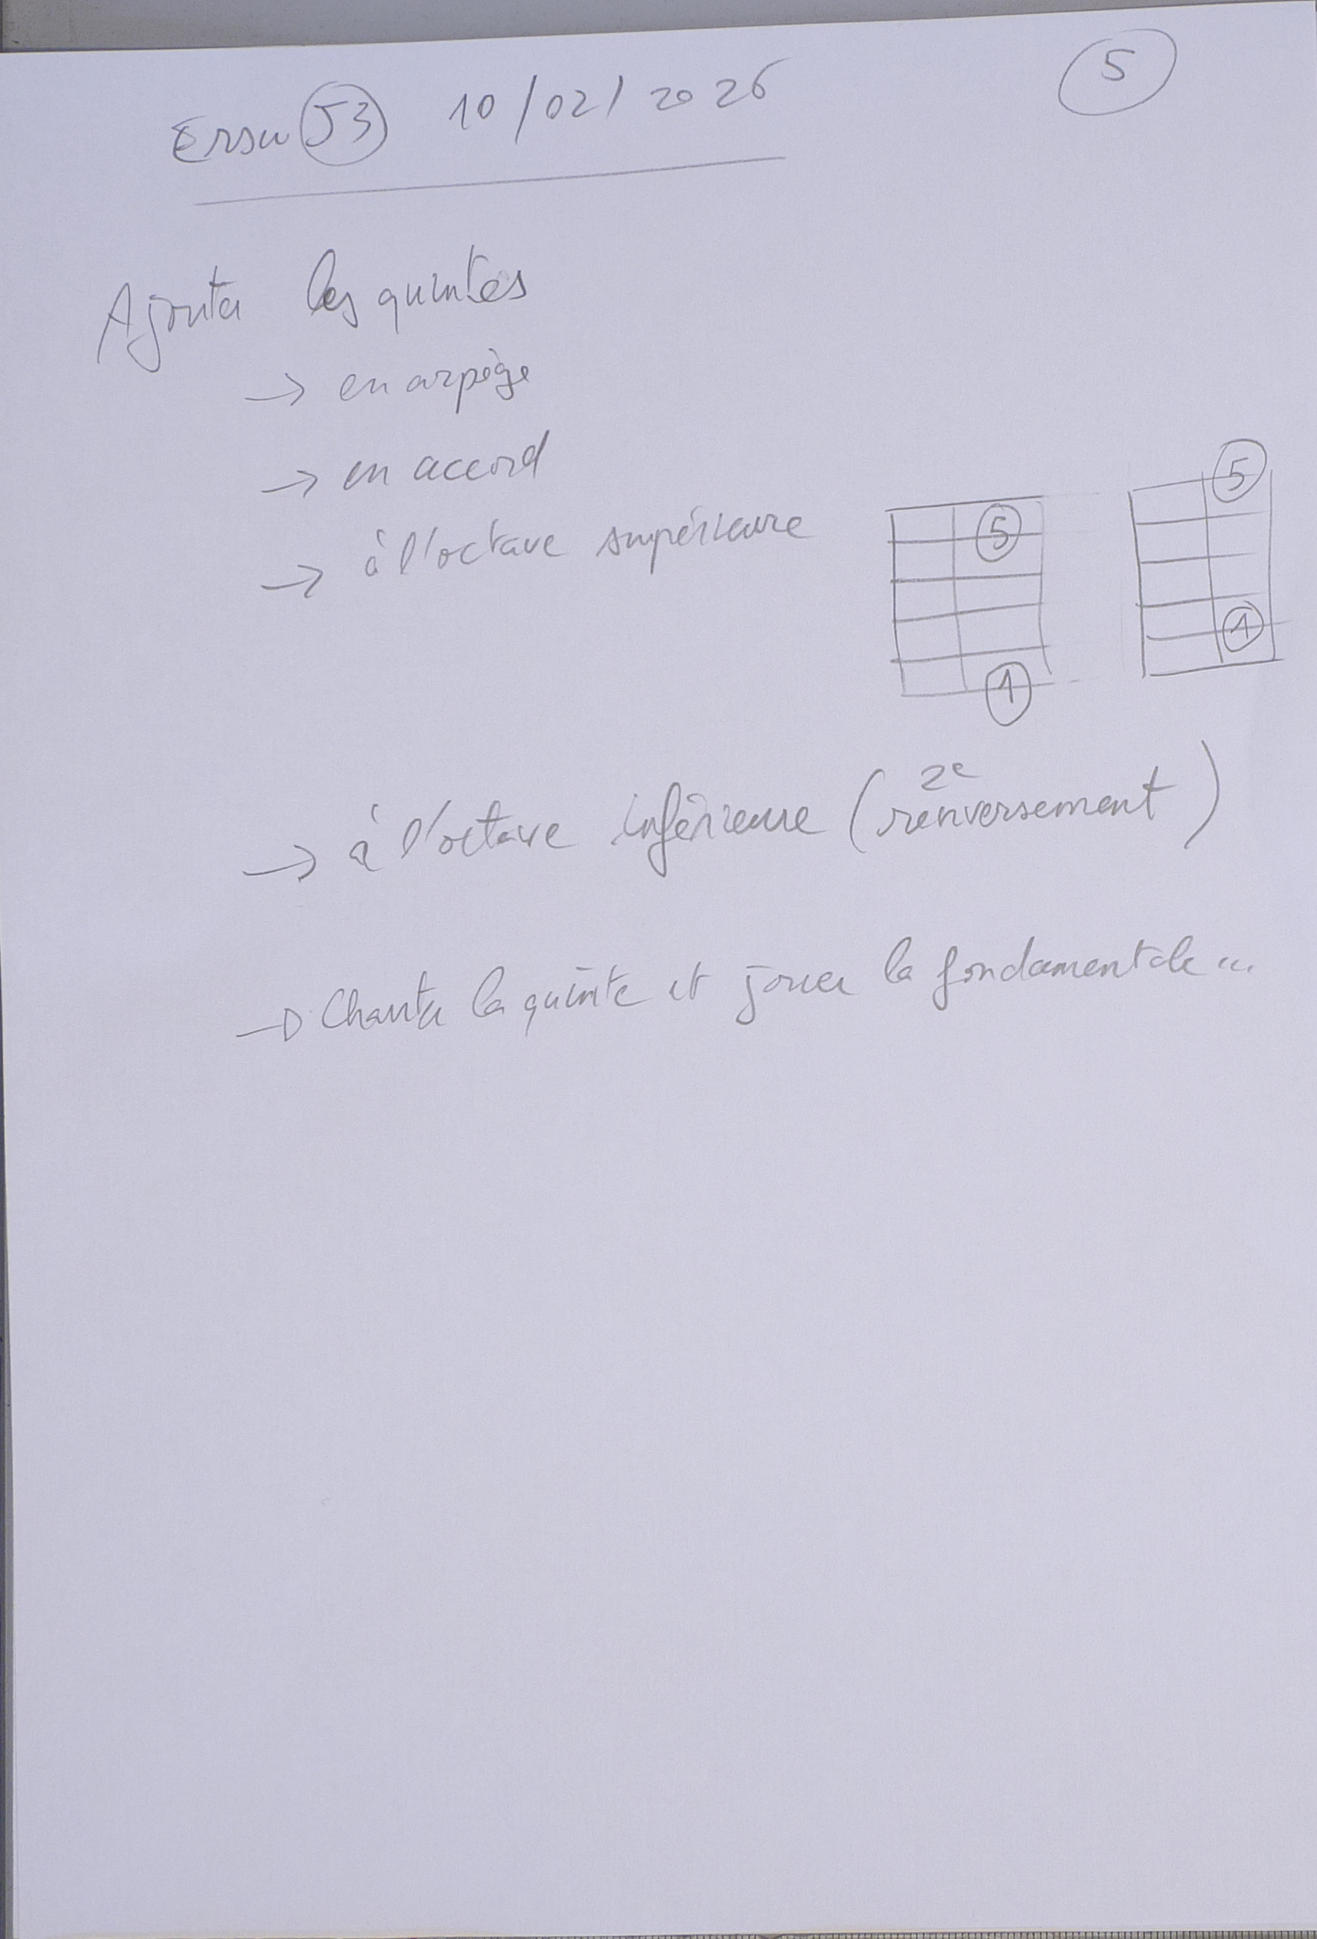 Ersu 53 10/02/2026
5
Ajouter les quintes
→ en arpège
→ en accord
→ à l'octave supérieure
5
1
5
1
→ à l'octave inférieure (2e renversement)
→ Chanter la quinte et jouer la fondamentale...